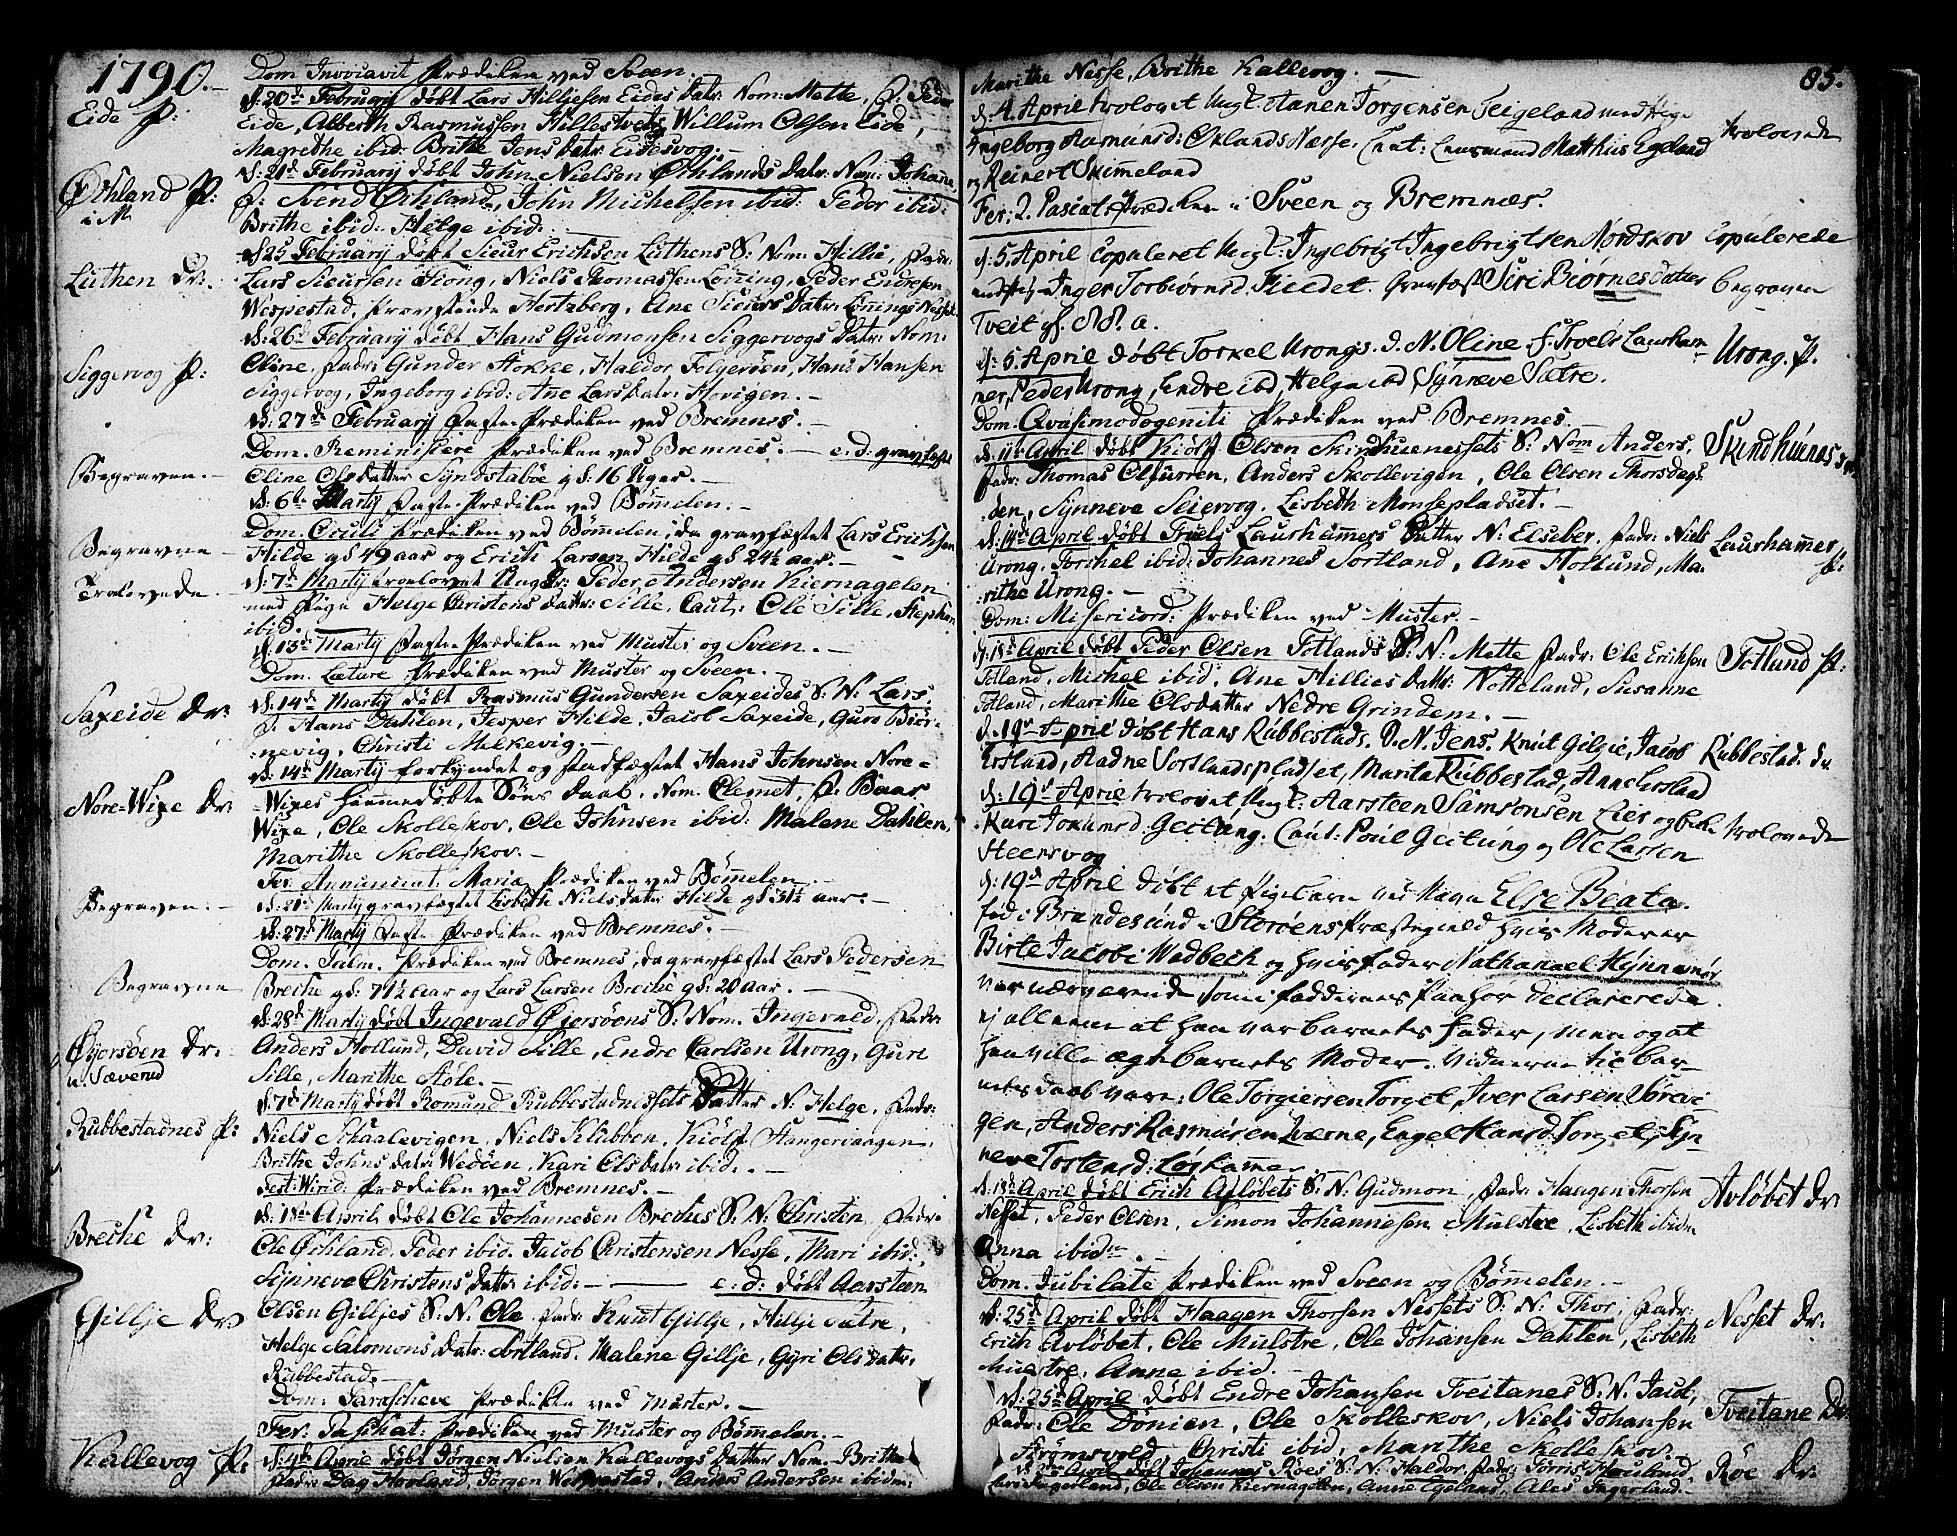 1790.
Dom. Invocavit Prædiken ved Sveen.
Eide P:
d: 20de February døbt Lars Hilljesen Eides Datr: Nom: Mette, F. Peder
Eide, Alberth Rasmussen Hillestveth, Willum Olsen Eide,
Magrethe ibid: Brithe Jens Datr: Eidesvog.-
Økland P:
i M
d: 21de February døbt John Nielsen Økhlands Datr: Nom: Johane,
F: Svend Økhland, John Michelsen ibid: Peder ibid:
Brithe ibid: Helge ibid.-
Luthen Dr:
d: 25 February døbt Sieur Erichsen Luthens S: Nom: Hillie, Fadr:
Lars Sieursen Hong, Niels Thomassen Løning, Peder Endresen
Wespestad, Provstinde Hertzberg, Ane Sieurs Datr: Lønings Nesset
Siggervog P:
d: 26de February døbt Hans Gudmonsen Siggervogs Datr: Nom:
Oline, Fadr: Gunder Stokke, Haldor Folgerøen, Hans Hansen
Siggervog, Ingeborg ibid: Ane Lars Datr: Hovigen.-
d: 27de February Faste-Prædiken ved Bremnes.-
Dom. Reminiscere Prædiken ved Bremnes.- e. d. gravfæstet
Begraven.-
Oline Olsdatter Syndstabøe gl: 16 Uger.-
d: 6te Marty Faste-Prædiken ved Bømmelen.-
Dom. Oculi Prædiken ved Bømmelen, da gravfæstet Lars Erichsen
Begravne
Hilde gl: 49 aar og Erich Larsen Hilde gl: 24½ aar.-
Trolovede
d: 7de Marty troelovet Ungkr: Peder Andersen Kiernagelen
med Pige Helge Christens Datr: Sille, Caut: Ole Sille, Stephen
ibid:
d: 13de Marty Faste-Prædiken ved Muster og Sveen.-
Dom. Lætare Prædiken ved Muster og Sveen.-
Saxeide Dr:
d: 14de Marty døbt Rasmus Gundersen Saxeides S: N: Lars,
F: Hans Dahlen, Jesper Hilde, Jacob Saxeide, Guro Biør-
nevig, Christi Melkevig.-
Nore-Wixe Dr:
d: 14de Marty forkyndet og stadfæstet Hans Johnsen Nore-
Wixes hiemmedøbte Søns Daab, Nom. Clemet, F. Baar
Wixe, Ole Skolleskov, Ole Johnsen ibid: Malene Dahlen,
Marithe Skolleskov.-
Fer: Annunciat: Mariæ Prædiken ved Bømmelen.-
Begraven.-
d: 21de Marty gravfæstet Lisbeth Nielsdatr: Hilde gl: 31½ aar.-
d: 27de Marty Faste-Prædiken ved Bremnes.-
Dom. Palm. Prædiken ved Bremnes, da gravfæstet Lars Pedersen
Begravne
Breche gl: 71½ aar og Lars Larsen Breche gl: 20 aar.-
Øyorsøen Dr:
u. Sæverud
d: 28de Marty døbt Ingevald Øjorsøens S: Nom. Ingevald, Fadr:
Anders Hollund, David Sille, Endre Carlsen Urong, Guri
Sille, Marithe Støle.-
Rubbestadnes P:
d: 7de Marty døbt Romund Rubbestadnessets Datter N: Helge, Fadr:
Niels Skaalevigen, Niels Klubben, Kiølf Stangervaagen,
Brithe Johns Datr: Wedøen, Kari Ols Datr: ibid.-
Fest: Virid: Prædiken ved Bremnes.-
Breche Dr:
d: 1ste April døbt Ole Johannesen Breches S: N: Christen, Fadr:
Ole Økland, Peder ibid. Jacob Christensen Nesse, Mari ibid:
Synneve Christens Datr: ibid:- e: d: døbt Aarsteen
Gillje Dr:
Olsen Gilljes S: N: Ole, Fadr: Knut Gillje, Hillje Sætre,
Helge Salomons Datr: Sortland, Malene Gillje, Gyri Ols Datr:
Rubbestad.-
Dom: Parascheve Prædiken ved Muster.-
Fer: Paschat: Prædiken ved Muster og Bømmelen.-
Kallevog P:
d: 4de April døbt Jørgen Nielsen Kallevogs Datter Nom. Brithe
Fadr: Dag Hovland, Jørgen Wespestad, Anders Andersen ibidm:
85.
Marithe Nesse, Brithe Kallevog.-
d. 4 April trolovet Ungk: Hanen Torgensen Teigeland med Pige
Ingeborg Aasmunsd: Eklands Nesse. Caut: Lensmand Matthius Egeland
trolovede
og Reinert Skimmeland
Fer: 2. Pascat. Prædiken i Sveen og Bremnæs.
d: 5. April Copuleret Ungk: Ingebrigt Ingebrigtsen Nordskov
Copulerede
og Inger Torbiørnsd Hiedet. Gravfæst Siri Biørnes Datter
Begraven
Tveit gl: 88. a.
d: 5. April døbt Torkel Urongs. D. N. Oline F: Troels Laurham-
Urong. P.
mer, Peder Urong, Endre ibd, Helga ibd Synneve Sætre.
Dom. Qvasimodogeniti Prædiken ved Bremnes.
d. 11te April døbt Kiølf Olsen Skindhuenessets S: Nom Anders,
Skindhuenes Dr:
Fadr: Thomas Olfurren, Anders Skollevigen, Ole Olsen Thorsdag:
den, Synneve Seiervog, Lisbeth Monsepladset.-
d. 14de April døbt Truels Laurhammers Datter N: Elseber. Fadr: Niels
Laurhammer P:
Urong. Torchel ibid: Johannes Sortland, Ane Hollund, Ma-
rithe Urong.-
Dom: Misericord: Prædiken ved Muster.-
d. 18de April døbt Peder Olsen Totlands D: N: Mette Fadr: Ole Erichsen
Totland P:
Totland, Michel ibid: Ane Hillies Datr: Notteland, Susanne
Totland, Marithe Olsdatter Nedre Grindem.-
d. 19de April døbt Hans Rubbestads. D. N. Jens. Knut Gilgie, Jacob
Rubbestad. Dr.
Ersland, Aadne Sortlandspladset, Marita Rubbestad, Anne Ersland
d: 19de April trolovet Ungk: Aarsteen Samsonsen Eier og Pike
trolovede
Kari Jokumsd: Geitung. Caut: Poul Geitung og Ole Larsen
Steensvog
d: 19de April døbt et Pigebarn ved Navn Else Beata.
fød i Brandesund i Storøens Præstegield hvis Moder er
Birte Jacobi Wedbech og hvis Fader Nathanael Hynnemør
var nærværende som Fadderens saa her declarerede
ej allene at han var barnets Fader, men og at
han ville ægte barnets Moder. Vidnerne til bar-
nets daab vare: Ole Torgiersen Torget, Iver Larsen Sørevi-
gen, Anders Rasmusen Lværne, Engel Hansd. Torget, Syn-
neve Tostensd: Løshammer
d. 18de April døbt Erich Avløbets S: N: Gudmon, Fadr: Haagen Thorsen
Avløbet Dr:
Nesset, Peder Olsen, Simon Johannesen Mulstre, Lisbeth ibidm
Anna ibidm.-
Dom. Jubilate Prædiken ved Sveen og Bømmelen.-
d: 25de April døbt Haagen Thorsen Nessets S: N: Thor, Fadr:
Nesset Dr:
Erich Avløbet, Ole Mulstre, Ole Johansen Dahlen, Lisbeth
Mulstre, Anne ibid.-
d: 25de April døbt Endre Johansen Tveitanes S: N. Jacob,
Tveitane Dr:
Fadr: Ole Dønien, Ole Skolleskov, Niels Johansen
Strømsvold, Christi ibid, Marithe Skolleskov.
April døbt Johannes Røes S: N: Haldor, Fadr: Torris Houlund
Røe Dr:
Lars Ingerland, Ole Olsen Kiernagelen, Anne Egeland, Ales Ingerland.-